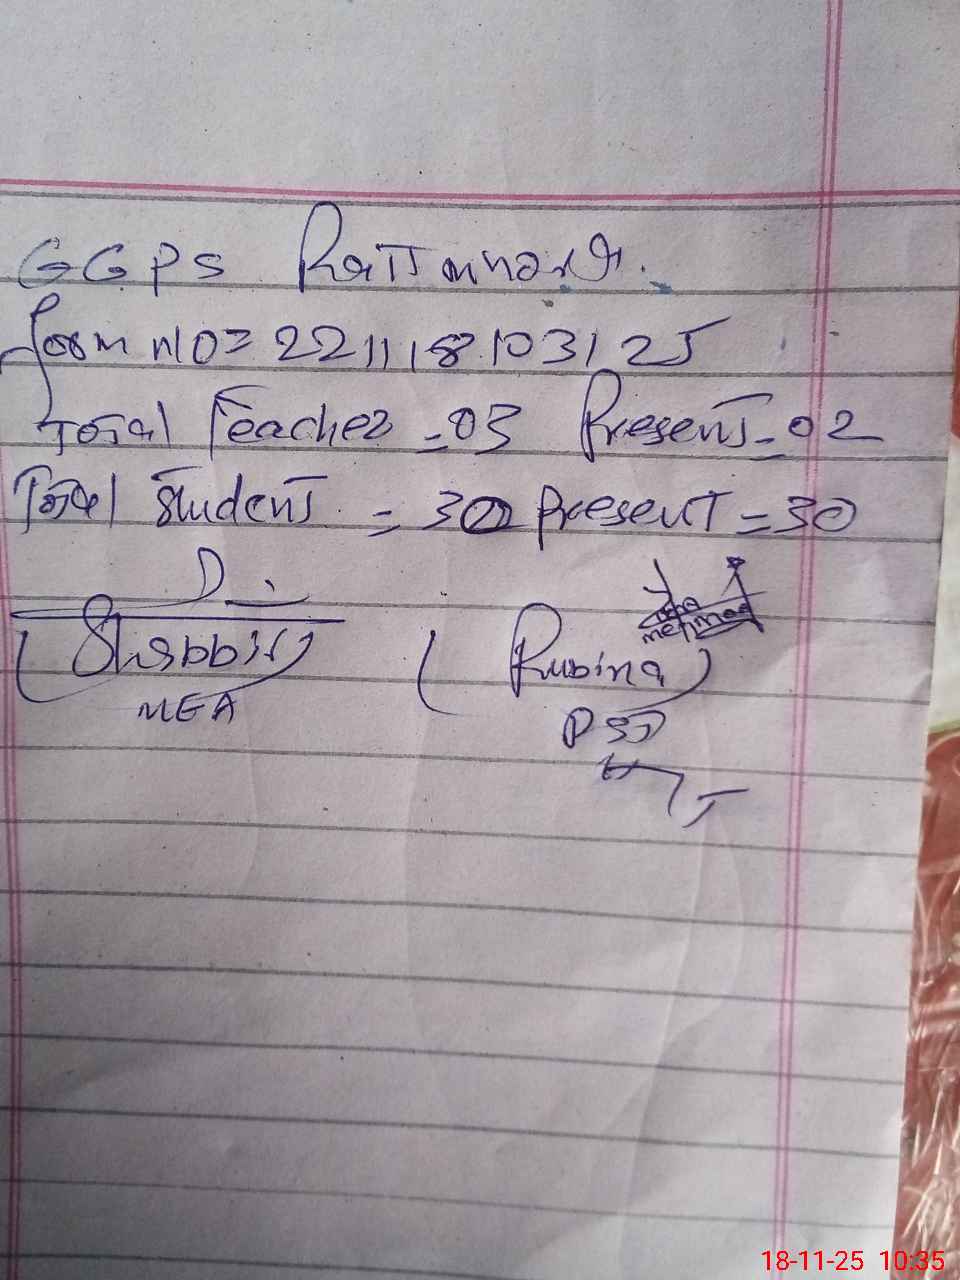 GGPS
Form NO= 221118103125
Total Teacher = 03 Present = 02
Total Student = 30 Present = 30
(Shabbir)
MEA
(Rubina)
PST
18-11-25 10:35